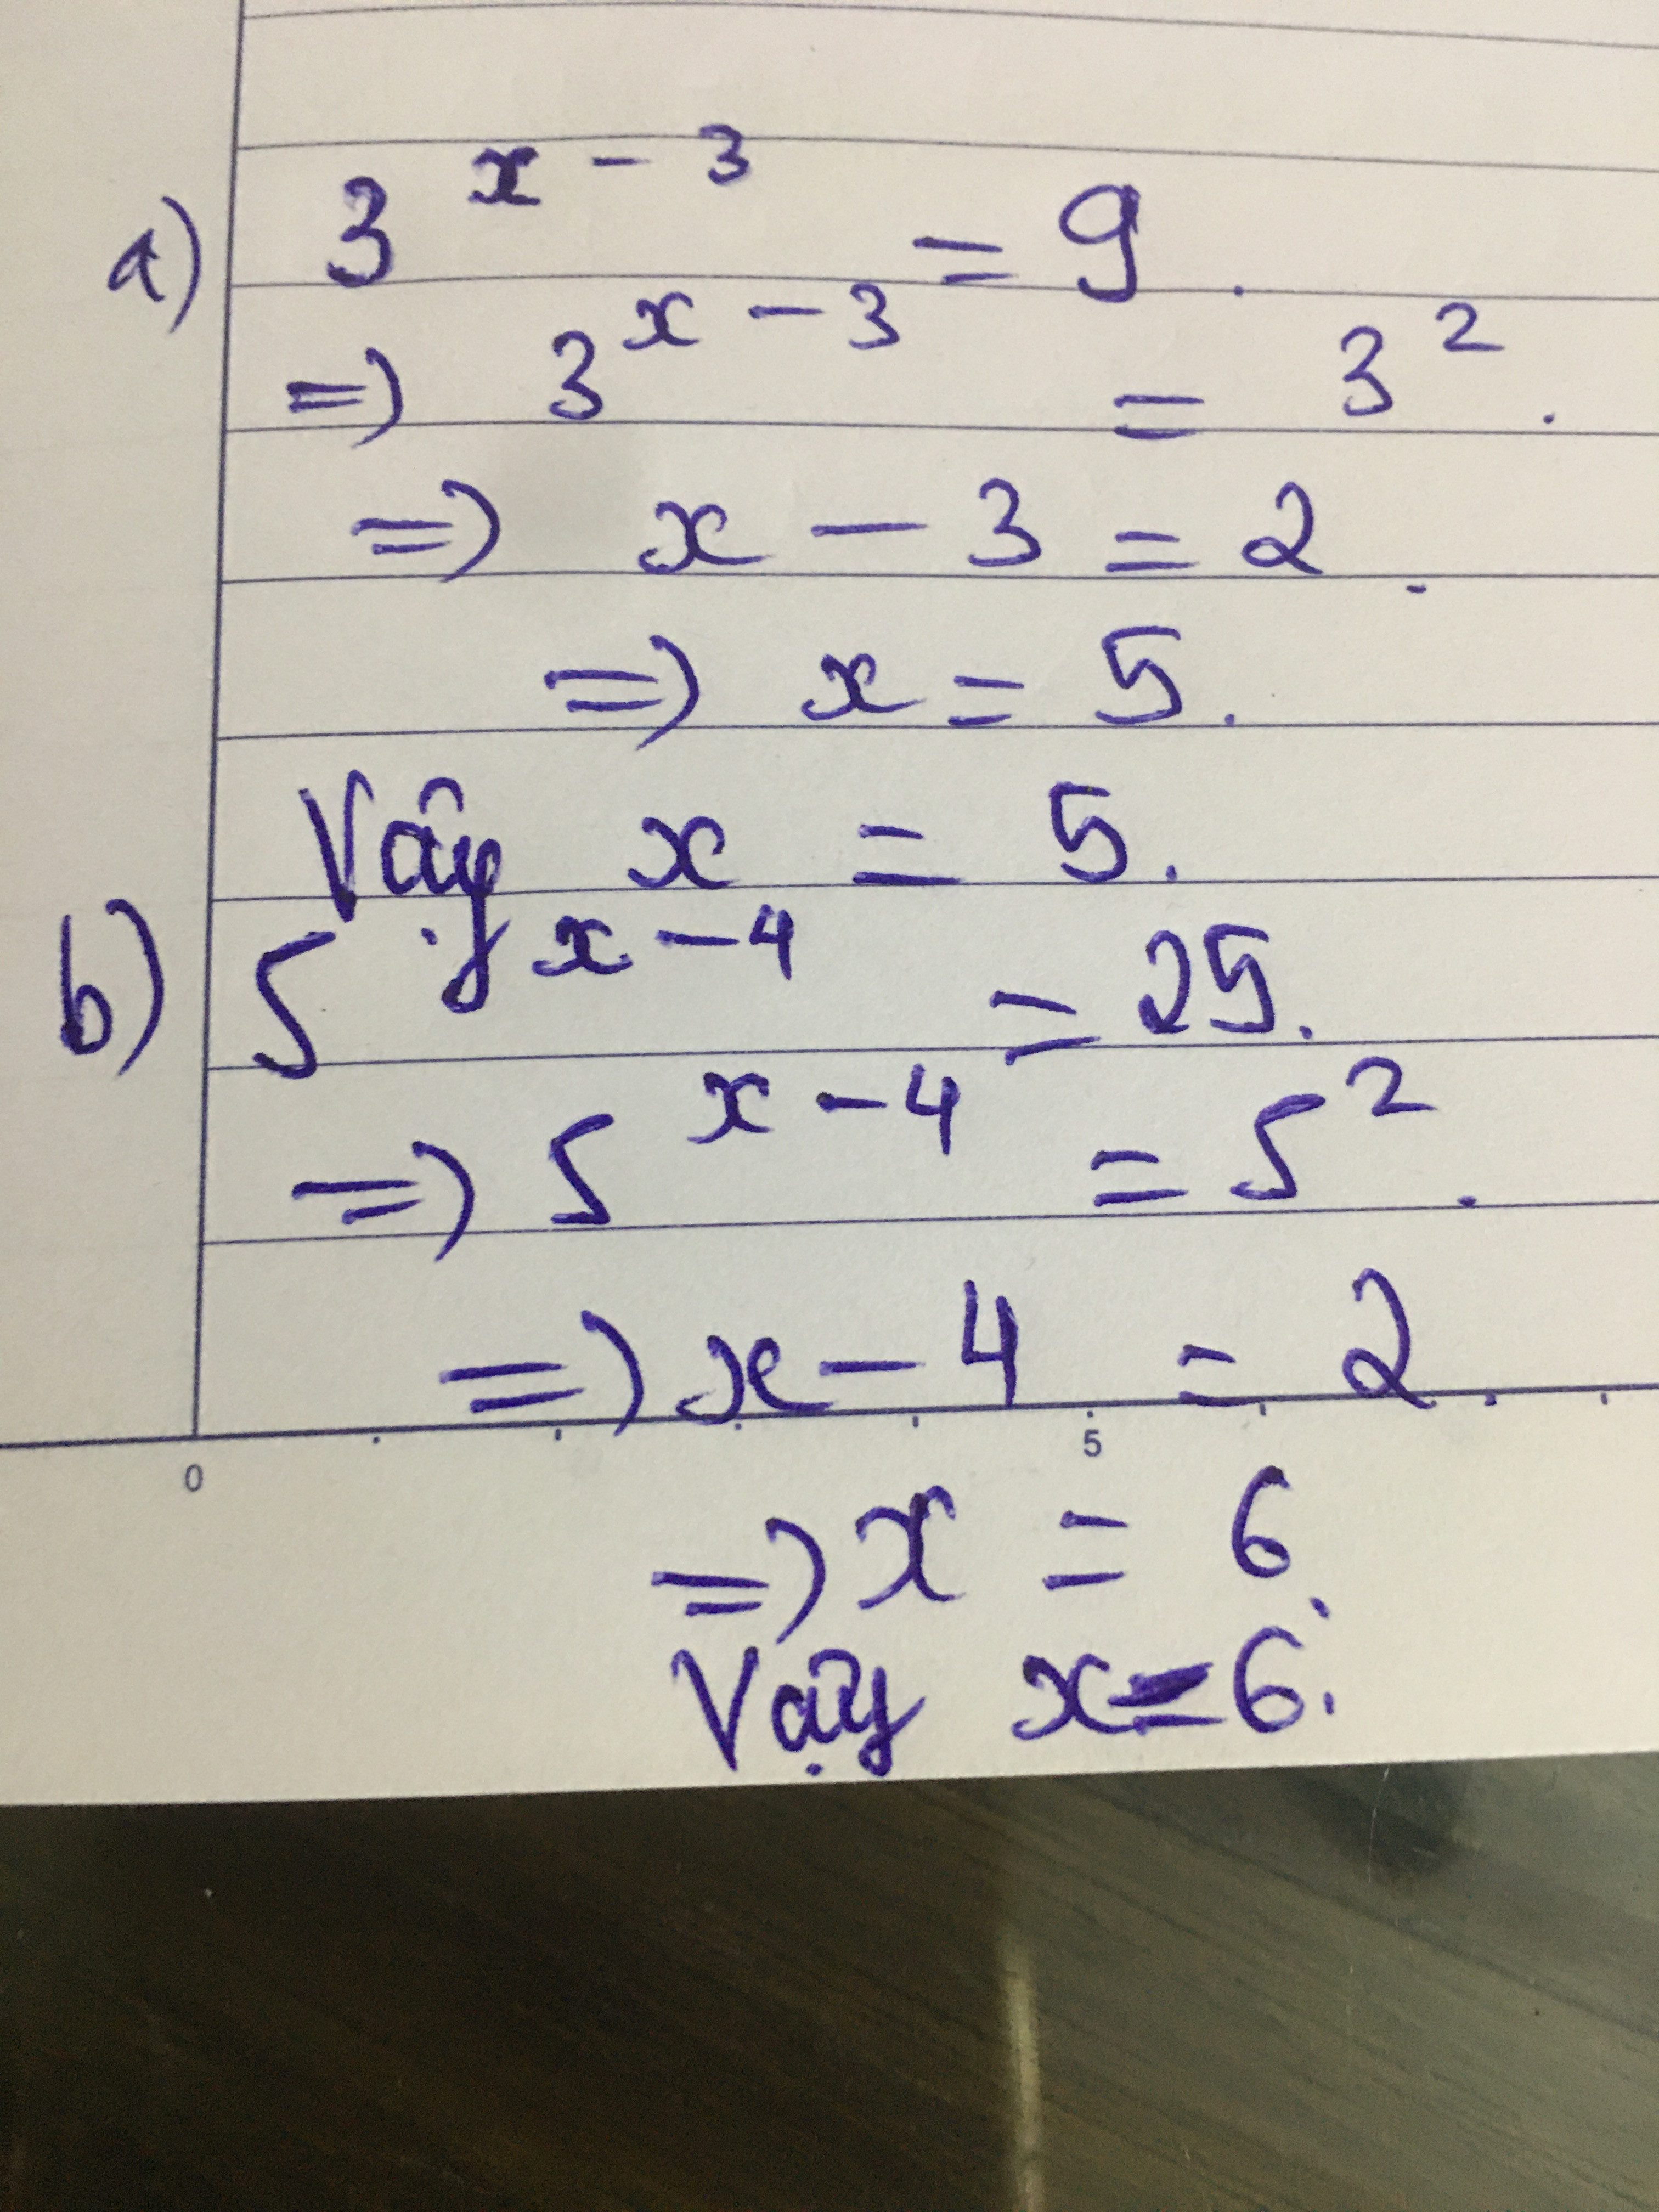 a) 3^{x-3} = 9.
=> 3^{x-3} = 3^2.
=> x - 3 = 2.
=> x = 5.
Vậy x = 5.
b) 5^{x-4} = 25.
=> 5^{x-4} = 5^2.
=> x - 4 = 2.
0 5
=> x = 6.
Vậy x = 6.